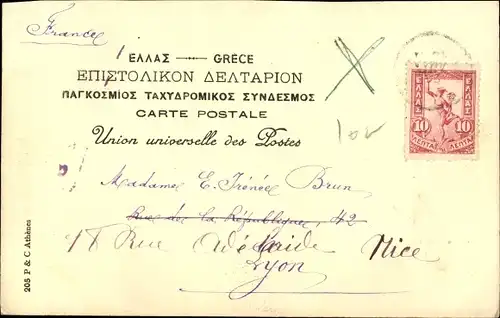 France
ΕΛΛΑΣ — GRECE
ΕΠΙΣΤΟΛΙΚΟΝ ΔΕΛΤΑΡΙΟΝ
ΠΑΓΚΟΣΜΙΟΣ ΤΑΧΥΔΡΟΜΙΚΟΣ ΣΥΝΔΕΣΜΟΣ
CARTE POSTALE
Union universelle des Postes
ΕΛΛΑΣ ΕΛΛΑΣ
10 10
ΛΕΠΤΑ ΛΕΠΤΑ
Madame E. Irénée Brun
Rue de la République, 42
18 Rue Nice
Lyon
205 P & C Athènes